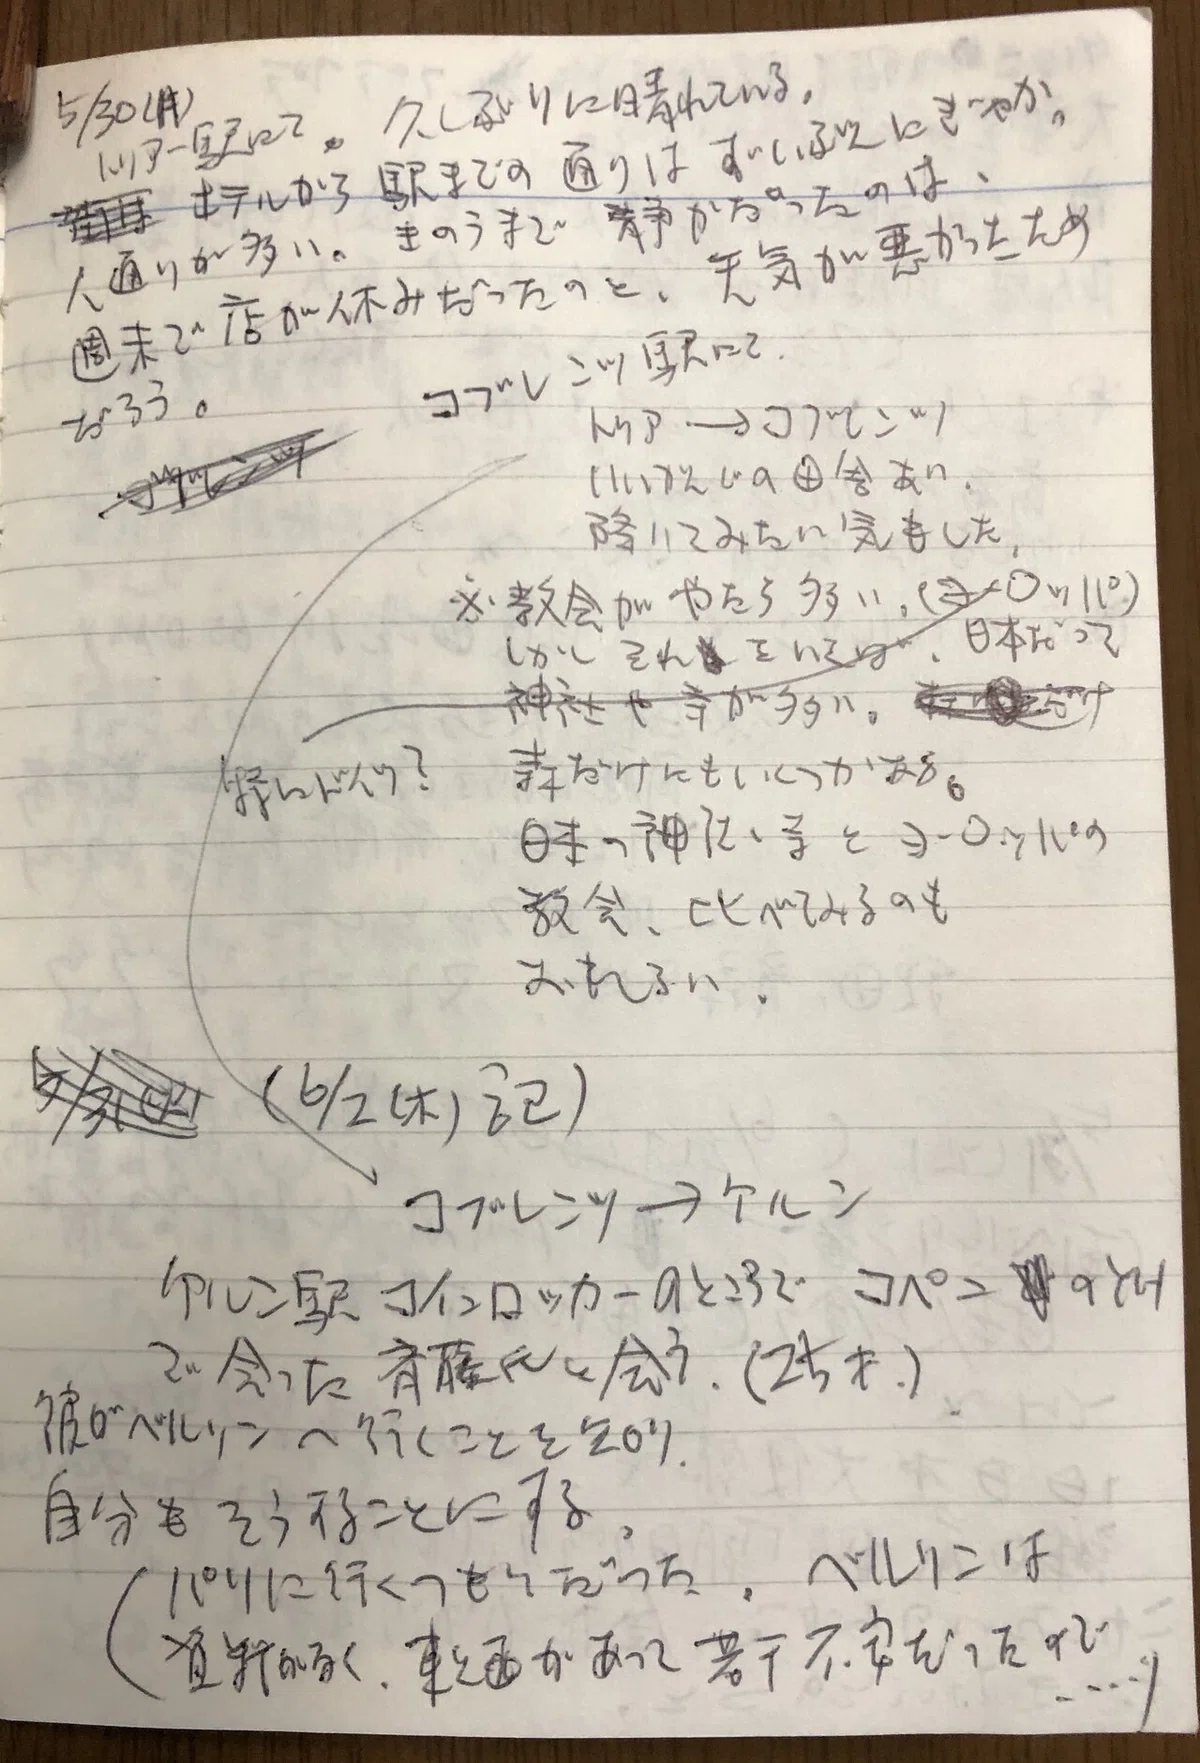 5/30(月)
トリアー駅にて。久しぶりに晴れている。
ホテルから駅までの通りはずいぶんにぎやか。
人通りが多い。きのうまで静かだったのは、
週末で店が休みだったのと、天気が悪かったため
だろう。
コブレンツ
コブレンツ駅にて.
トリア→コブレンツ
いいかんじの田舎あり.
降りてみたい気もした.
※教会がやたら多い。(ヨーロッパ)
しかしそれをいえば、日本だって
神社や寺が多い。
特にドイツ?
森だけにもいくつかある。
日本の神社い寺とヨーロッパの
教会、比べてみるのも
おもしろい.
5/31(火) (6/2(木)記)
コブレンツ→ケルン
ケルン駅コインロッカーのところでコペンのとけ
で会った斉藤氏と会う.(25才.)
彼がベルリンへ行くことを知り.
自分もそうすることにする.
(パリに行くつもりだった. ベルリンは
資料がなく、東と西があって若干不安だったので
....)